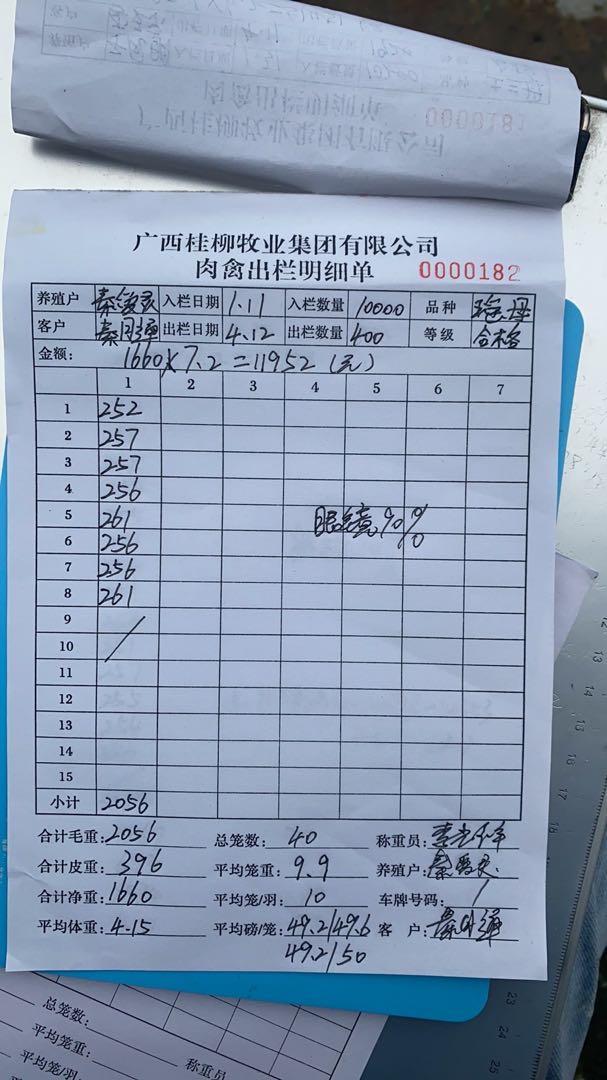 0000181
广西桂柳牧业集团有限公司
肉禽出栏明细单 0000182
养殖户 入栏日期 1.11 入栏数量 10000 品种 瑶母
客户 出栏日期 4.12 出栏数量 400 等级 合格
金额: 1660×7.2=11952(元)
1 2 3 4 5 6 7
1 252
2 257
3 257
4 256
5 261 眼镜90%
6 256
7 256
8 261
9
10
11
12
13
14
15
小计 2056
合计毛重:2056 总笼数: 40 称重员:
合计皮重: 396 平均笼重: 9.9 养殖户:
合计净重:1660 平均笼/羽: 10 车牌号码: /
平均体重: 4.15 平均磅/笼: 49.2/49.6 客 户:
49.2/50
总笼数:
平均笼重: 称重员
平均笼/羽:
12
13
14
15
16
17
18
23
24
25